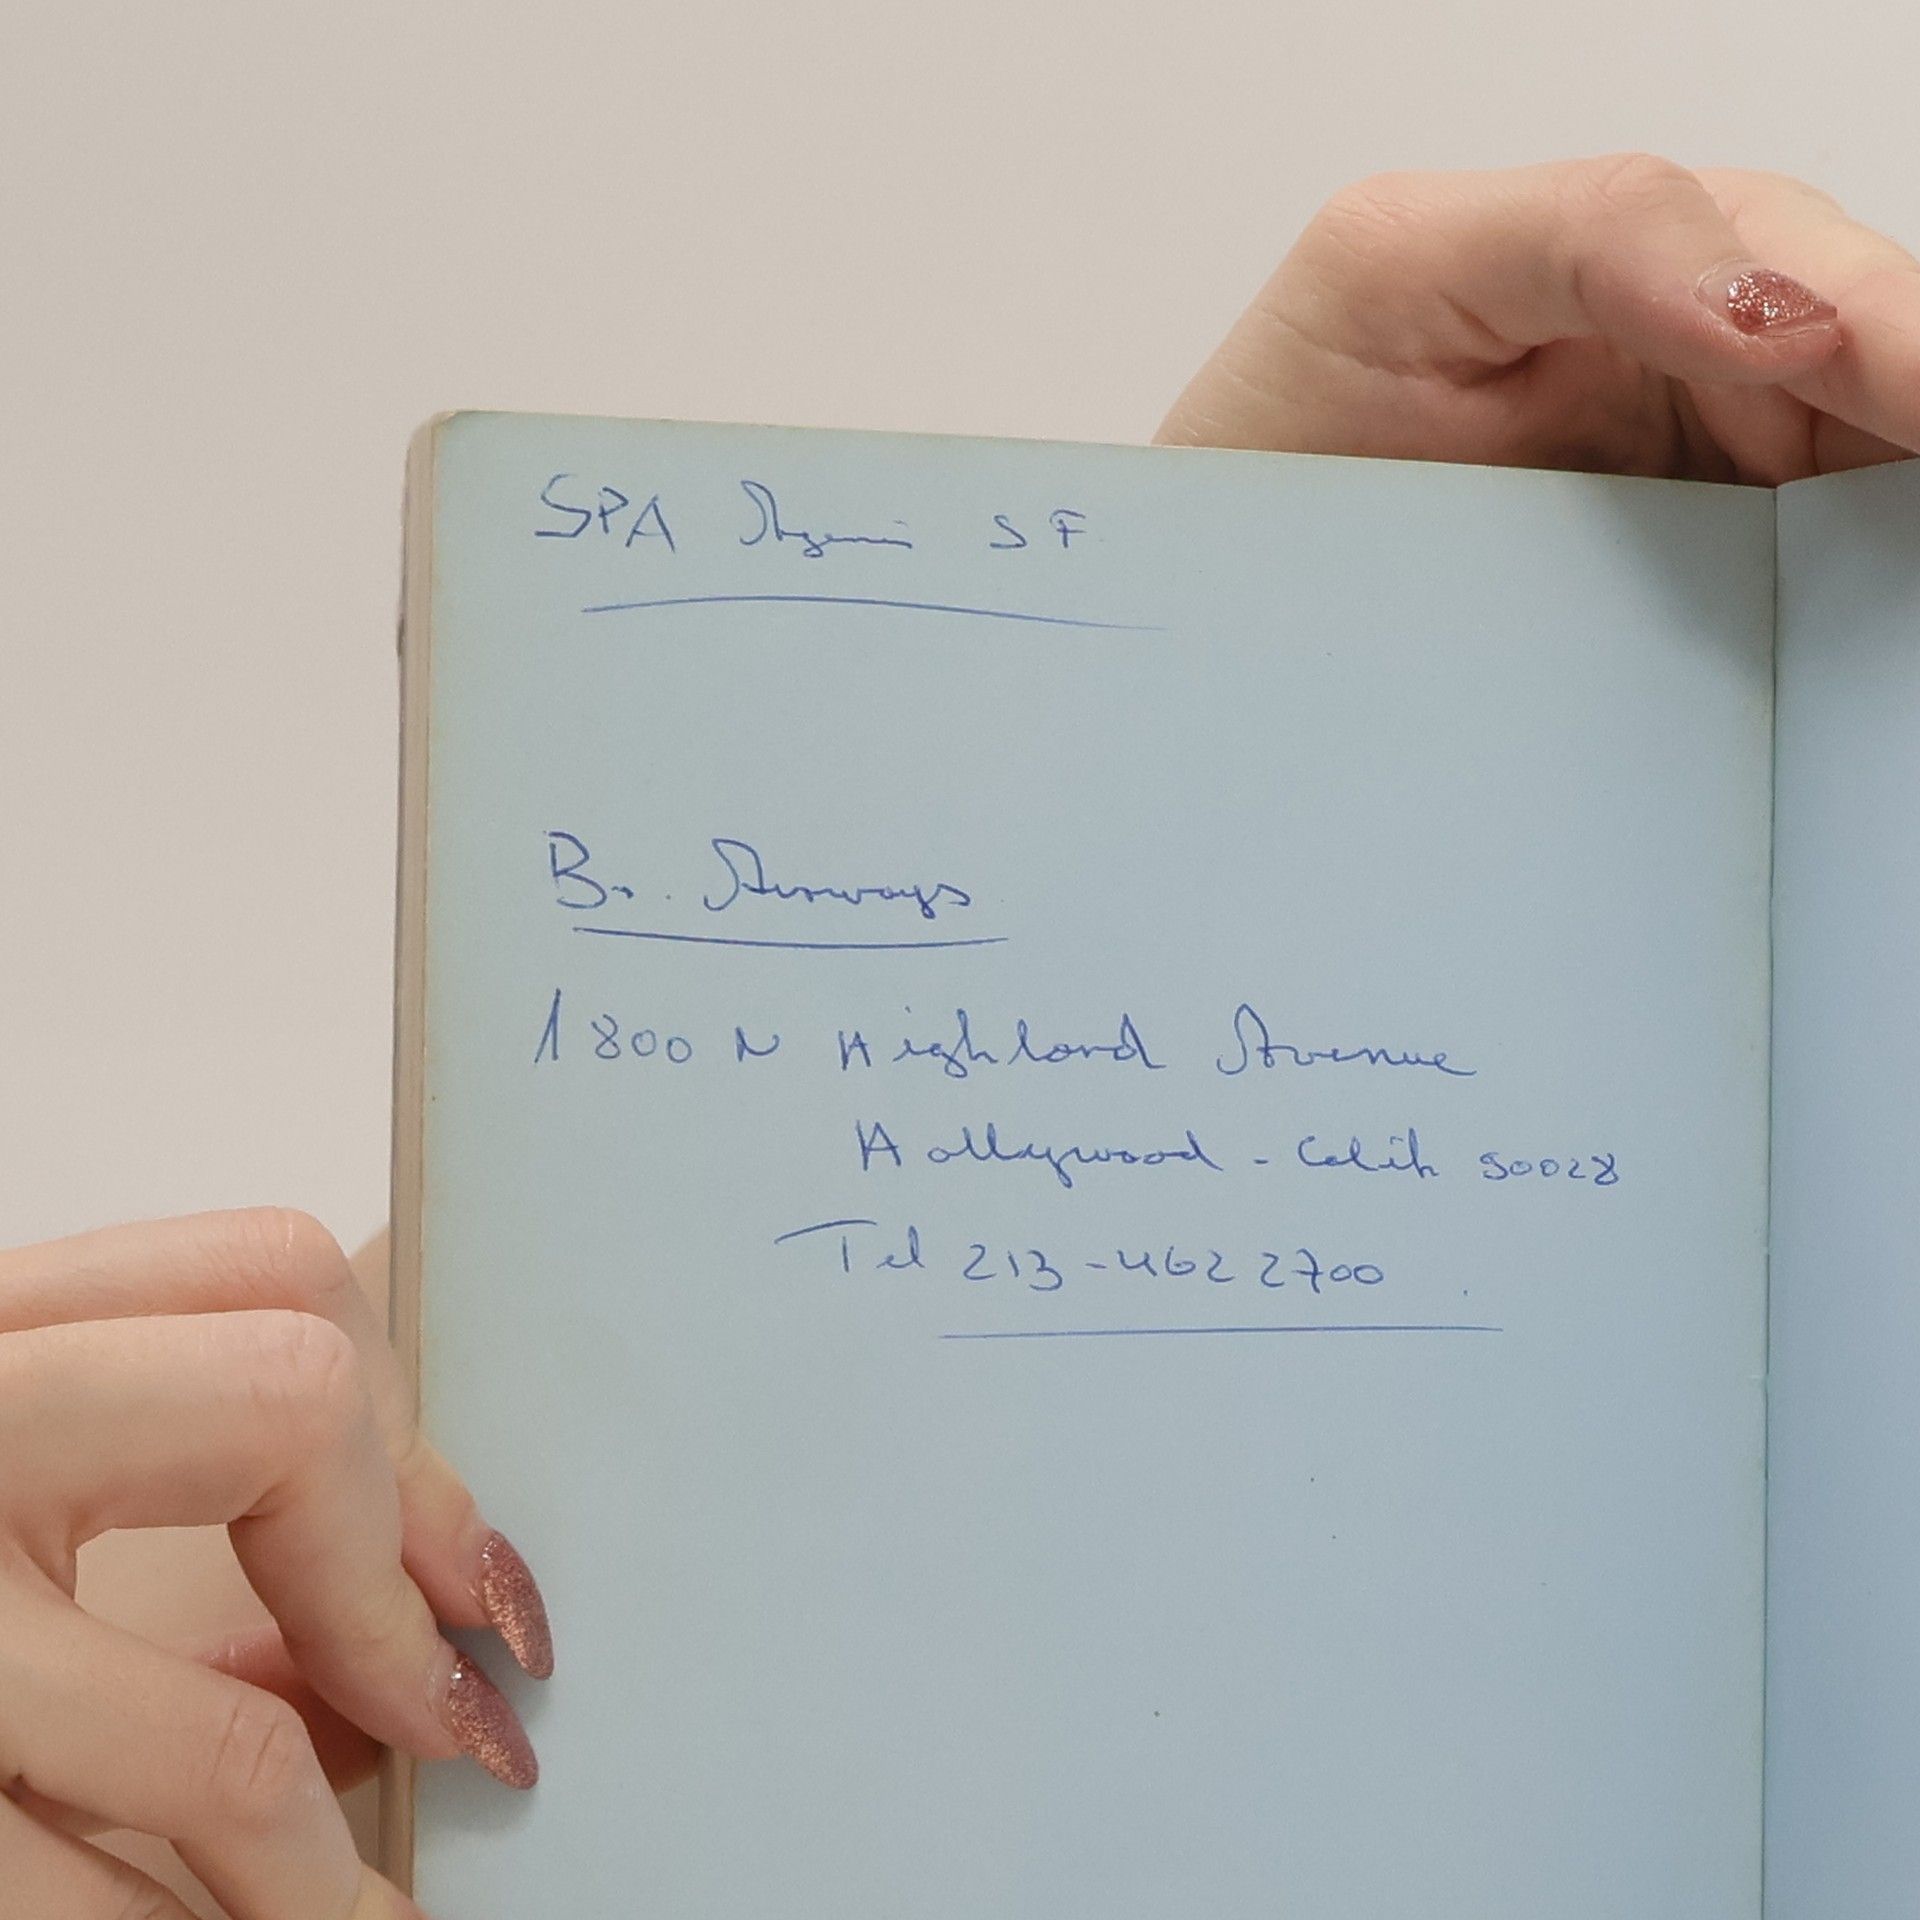 SPA SF
Br. Airways
1800 N Highland Avenue
Hollywood - Calif 90028
Tel 213-462 2700